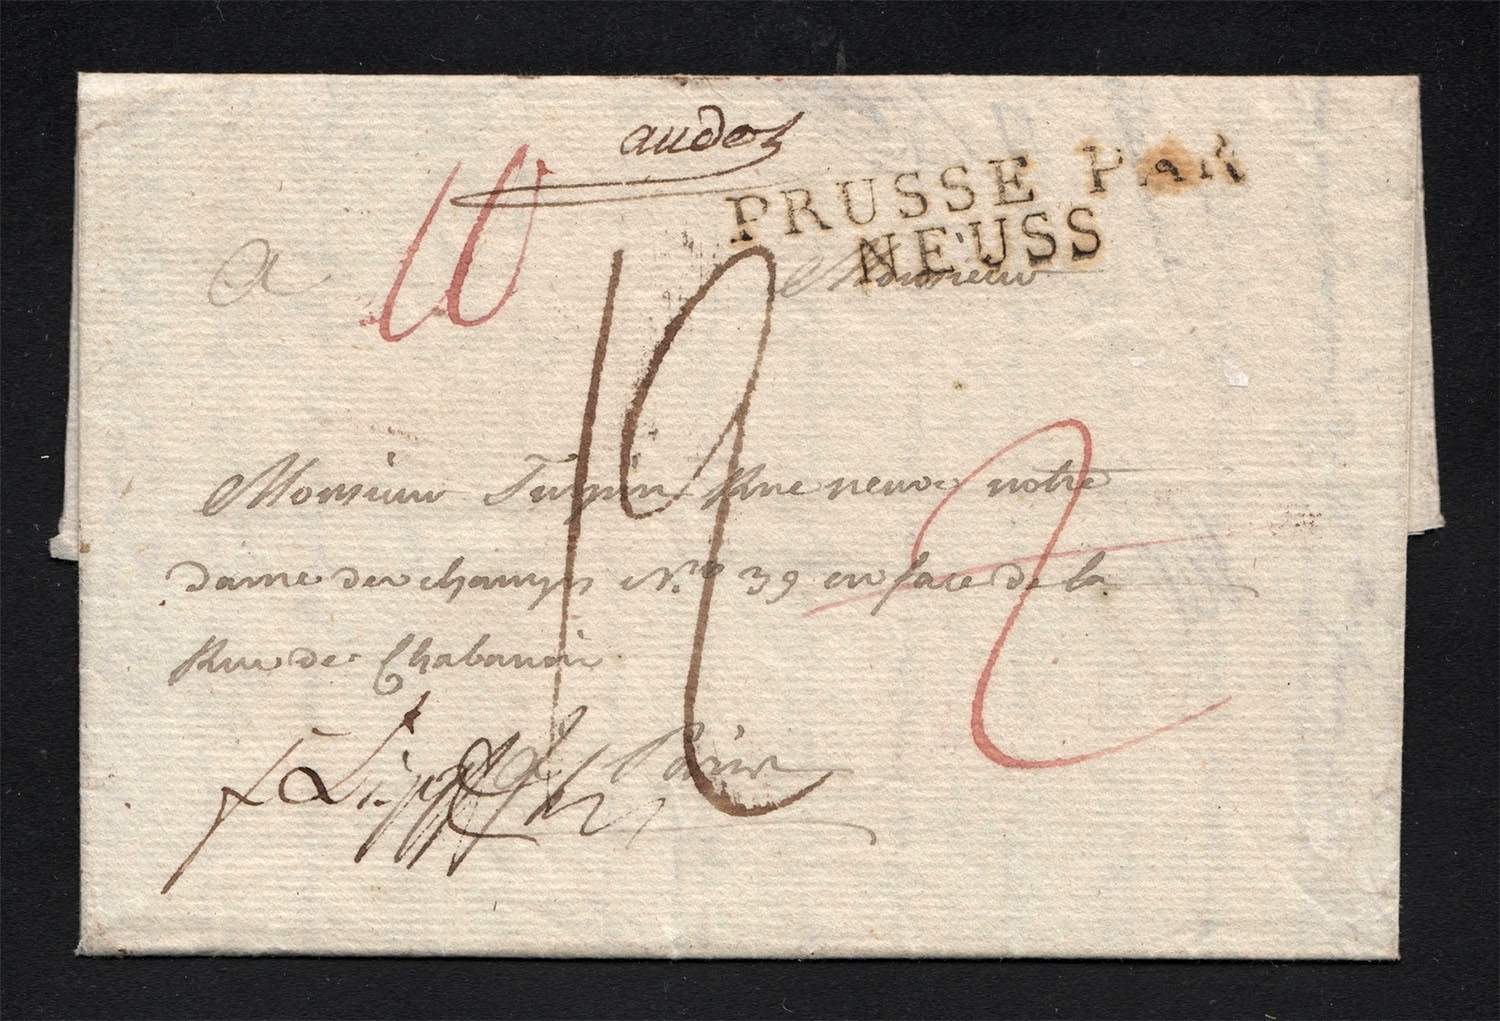 PRUSSE PAR
NEUSS
10
A
Monsieur
12
Monsieur Turpin Rue neuve notre
dame des champs N.º 39 en face de la
Rue de Chabanais
2
a Paris